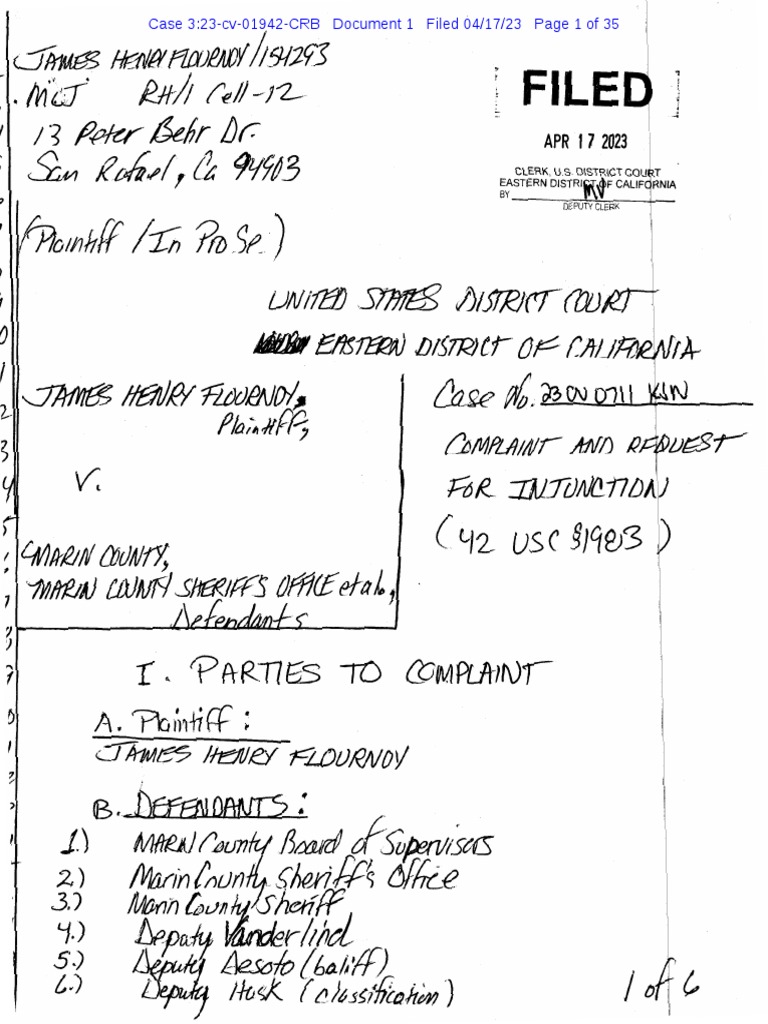 Case 3:23-cv-01942-CRB Document 1 Filed 04/17/23 Page 1 of 35
JAMES HENRY FLOURNOY/154293
MCJ RH/1 Cell-12
13 Peter Behr Dr.
San Rafael, Ca 94903
FILED
APR 17 2023
CLERK, U.S. DISTRICT COURT
EASTERN DISTRICT OF CALIFORNIA
BY
DEPUTY CLERK
(Plaintiff / In Pro Se)
UNITED STATES DISTRICT COURT
EASTERN DISTRICT OF CALIFORNIA
JAMES HENRY FLOURNOY,
Plaintiff,
V.
MARIN COUNTY,
MARIN COUNTY SHERIFF'S OFFICE et al.,
Defendants
Case No. 23 CV 0711 KJN
COMPLAINT AND REQUEST
FOR INJUNCTION
(42 USC §1983)
I. PARTIES TO COMPLAINT
A. Plaintiff:
JAMES HENRY FLOURNOY
B. DEFENDANTS:
1.) MARIN County Board of Supervisors
2.) Marin County Sheriff's Office
3.) Marin County Sheriff
4.) Deputy Vanderlind
5.) Deputy Desoto (baliff)
6.) Deputy Hosk (classification)
1 of 6